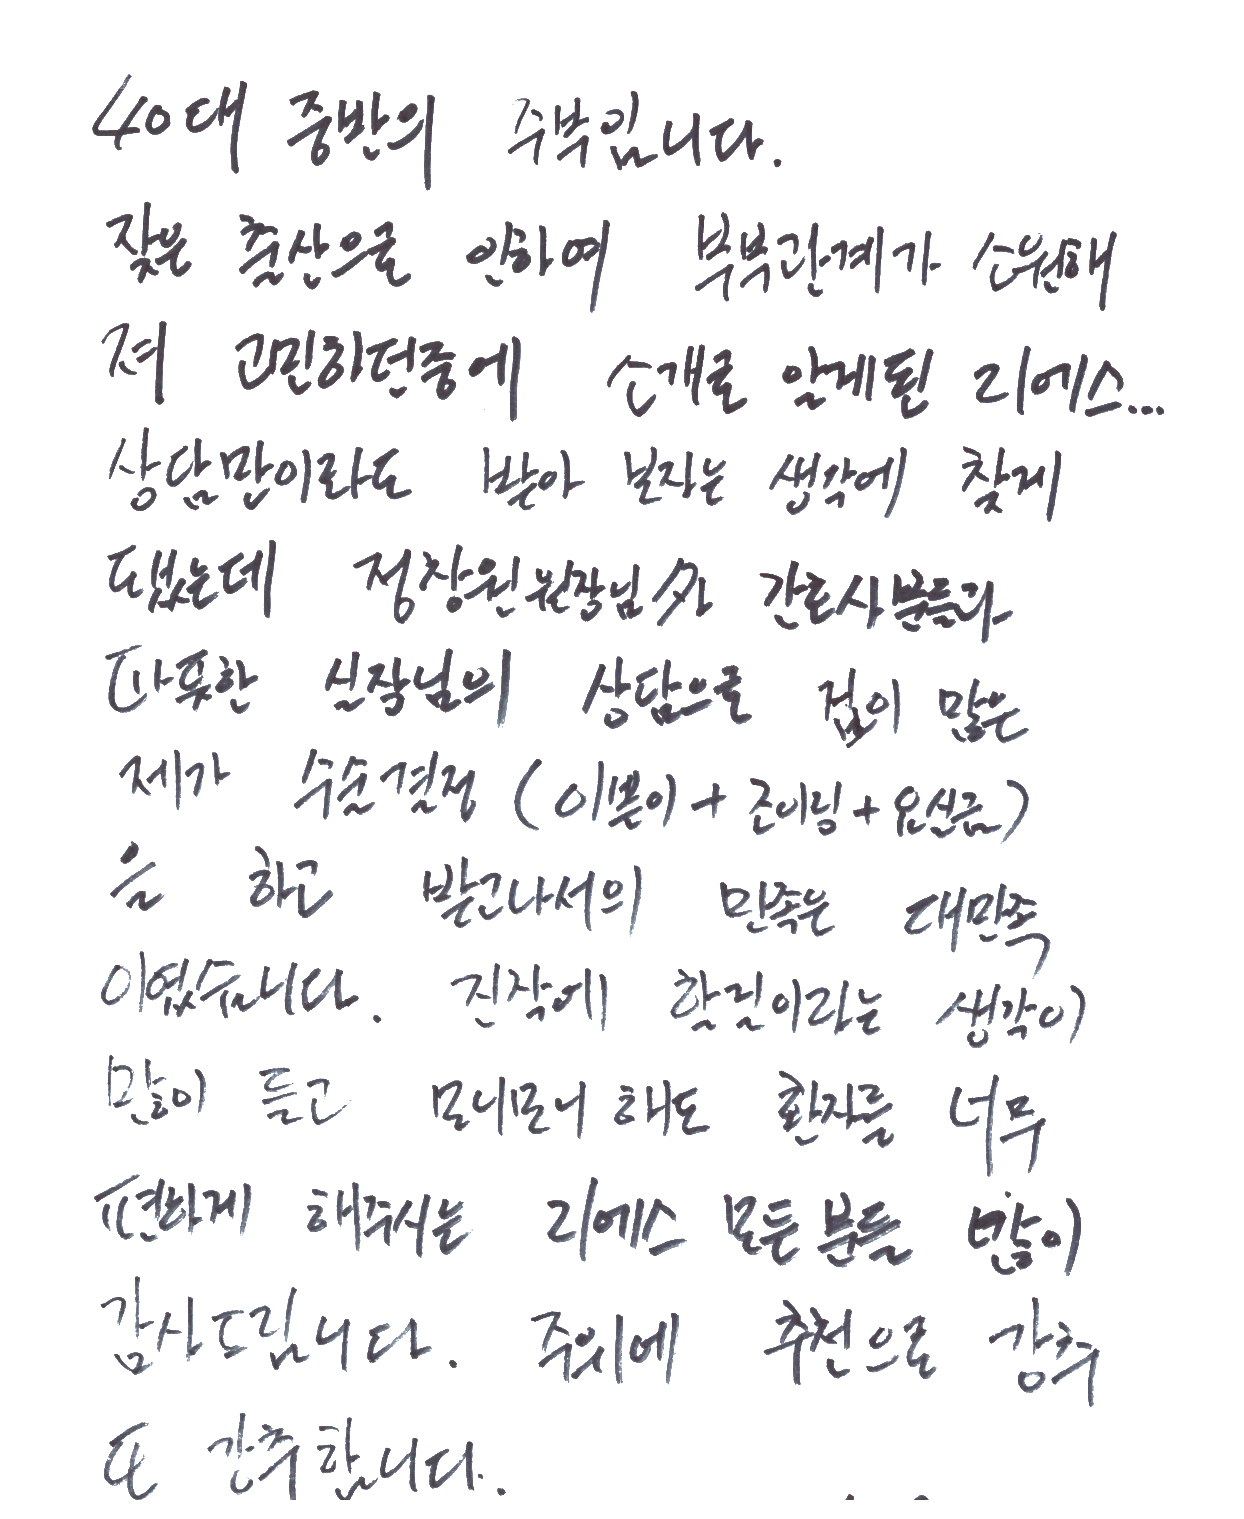 40대 중반의 주부입니다.
잦은 출산으로 인하여 부부관계가 소원해
져 고민하던중에 소개로 알게된 리에스...
상담만이라도 받아 보자는 생각에 찾게
됐는데 정창원원장님 外 간호사분들과
따뜻한 실장님의 상담으로 겁이 많은
제가 수술결정 (이쁜이+조이닝+요실금)
을 하고 받고나서의 만족은 대만족
이였습니다. 진작에 할걸이라는 생각이
많이 들고 모니모니 해도 환자를 너무
편하게 해주시는 리에스 모든분들 많이
감사드립니다. 주위에 추천으로 강추
또 강추합니다.